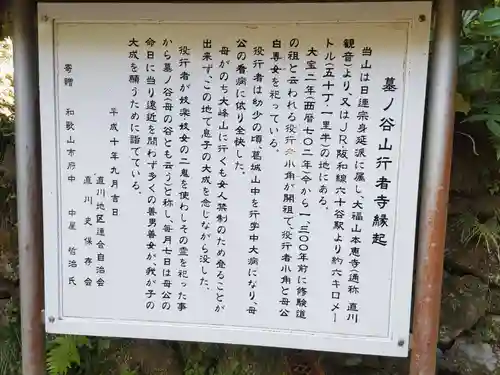 墓ノ谷山行者寺縁起
当山は日蓮宗身延派に属し、大福山本恵寺(通称 直川
観音)より、又はJR阪和線六十谷駅より約六キロメー
トル(五十丁・一里半)の地にある。
大宝二年(西暦 七〇二年)今から一、三〇〇年前に修験道
の祖と云われる役行者小角が開祖で、役行者小角と母公
白専女を祀っている。
役行者は幼少の頃、葛城山中を行学中大病になり、母
公の看病に依り全快した。
母がのち大峰山に行くも女人禁制のため登ることが
出来ず、この地で息子の大成を念じながら没した。
役行者が妓学、妓女の二鬼を使わしその霊を祀った事
から墓ノ谷(母の谷とも云う)と称し、毎月七日は母公の
命日に当り遠近を問わず多くの善男善女が、我が子の
大成を願うために詣でている。
平成十年九月吉日
直川地区連合自治会
直川史保存会
寄贈 和歌山市府中 中屋 哲治 氏